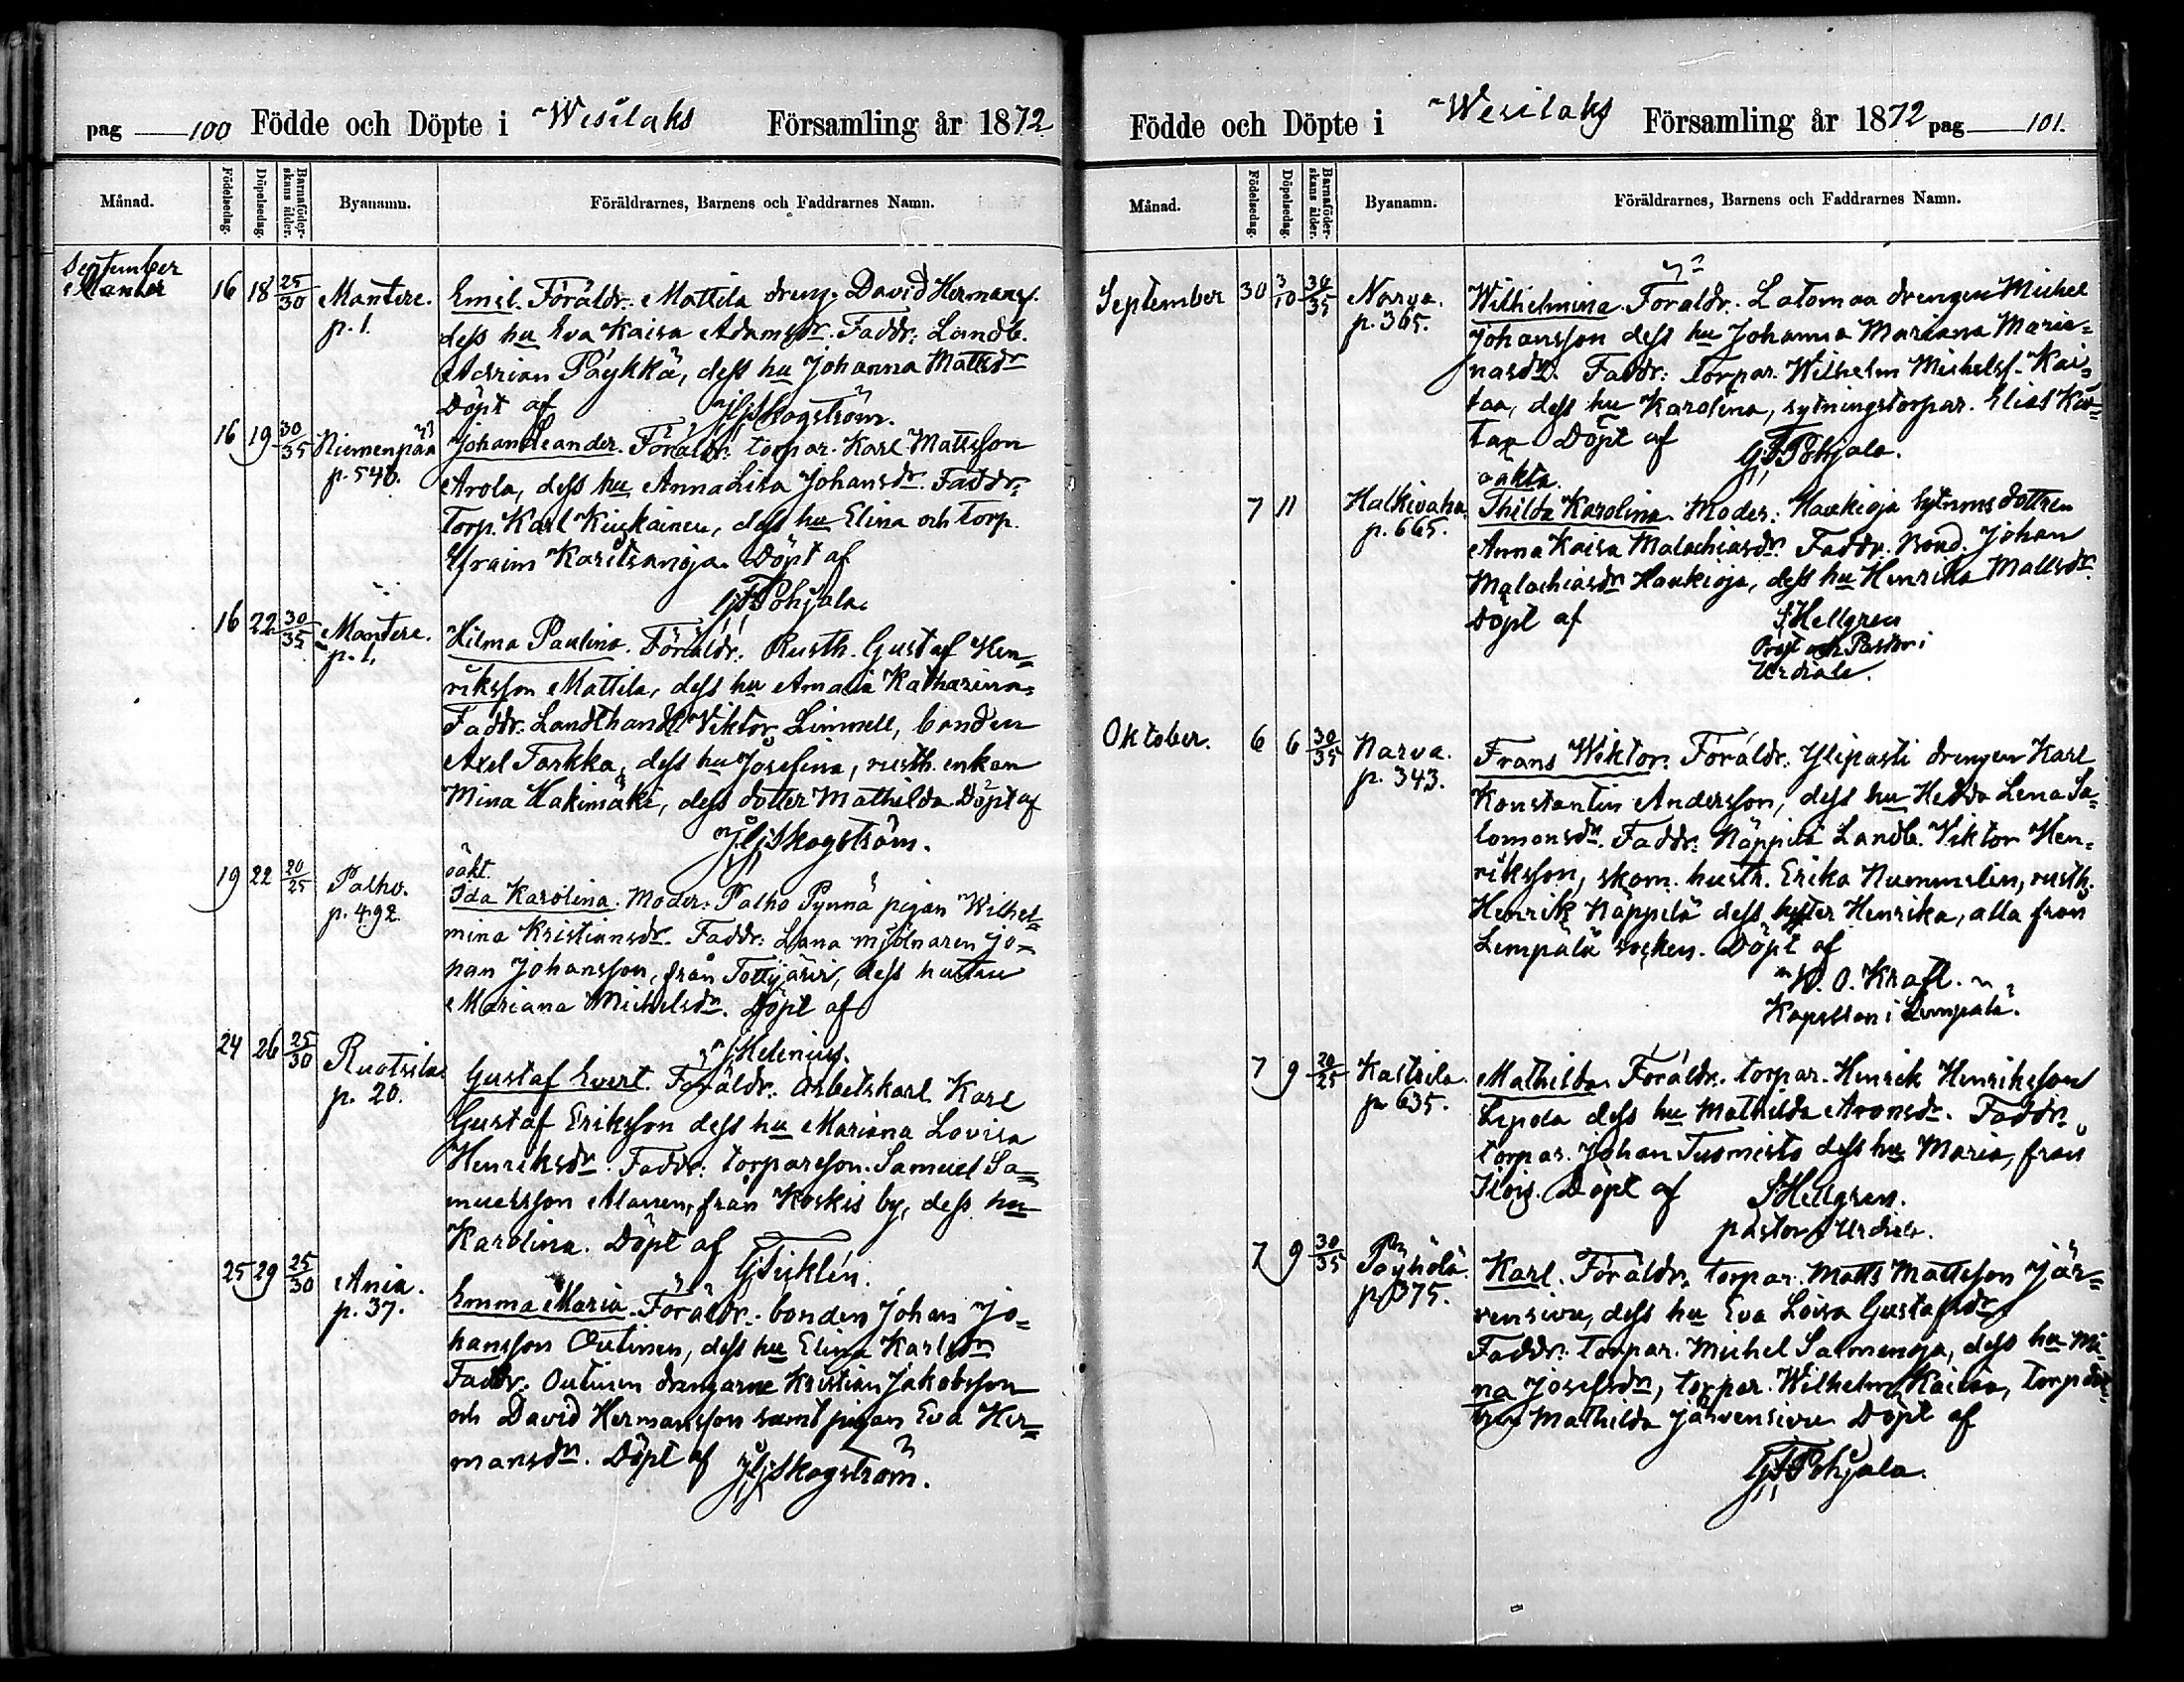 pag 100 Födde och Döpte i Wesilaks Församling år 1872
Månad. Födelsedag. Döpelsedag. Barnaföderskans ålder. Byanamn. Föräldrarnes, Barnens och Faddrarnes Namn.
September
16 18 25/30 Mantere. p. 1.
Emil. Föräldr. Mattila dreng. David Hermanss.
dess hu Eva Kaisa Adamsdr. Faddr: Landb.
Adrian Päykkä, dess hu Johanna Mattsdr
Döpt af
Skogström.
16 19 30/35 Niemenpää p. 540.
Johan Leander. Föräldr. torpar. Karl Mattsson
Arola, dess hu Anna Lisa Johansdr. Faddr.
Torp. Karl Kiukainen, dess hu Elina och torp.
Efraim Karitsanoja. Döpt af
GFPohjala.
16 22 30/35 Mantere. p. 1.
Hilma Paulina. Föräldr. Rusth. Gustaf Hen=
riksson Mattila, dess hu Amalia Katharina.
Faddr. Landthandl Viktor Limnell, bonden
Axel Tarkka, dess hu Josefina, rusth. enkan
Mina Hakimäki, dess dotter Mathilda. Döpt af
Skogström.
19 22 20/25 Palho. p. 492.
oäkt.
Ida Karolina. Moder: Palho Pynnä pigan Wilhel=
mina Kristiansdr. Faddr: Lana mjölnaren Jo=
han Johansson, från Tottijärvi, dess hustru
Mariana Michelsdr. Döpt af
Helenius.
24 26 25/30 Ruotsila p. 20.
Gustaf Evert. Föräldr. Arbetskarl Karl
Gustaf Eriksson dess hu Mariana Lovisa
Henriksdr. Faddr: torpareson. Samuel Sa=
muelsson Alanen, från Koskis by, dess hu
Karolina. Döpt af
25 29 25/30 Ania. p. 37.
Emma Maria. Föräldr. bonden Johan Jo=
hansson Outinen, dess hu Elina Karlsdr
Faddr. Outinen drengarne Kristian Jakobsson
och David Hermansson samt pigan Eva Her=
mansdr. Döpt af Skogström.
Födde och Döpte i Wesilaks Församling år 1872 pag 101.
Månad. Födelsedag. Döpelsedag. Barnaföderskans ålder. Byanamn. Föräldrarnes, Barnens och Faddrarnes Namn.
September 30 3/10 30/35 Narva. p. 365.
Wilhelmina. Föräldr. Latomaa drengen Michel
Johansson dess hu Johanna Mariana Maria=
nasdr. Faddr: Torpar. Wilhelm Michelss. Kai=
taa, dess hu Karolina, sytningstorpar. Elias Kai=
taa Döpt af GFPohjala.
oäkta.
7 11 Halkivaha p. 665.
Thilda Karolina. Moder: Haukioja Sytnmsdottren
Anna Kaisa Malachiasdr. Faddr. Bond. Johan
Malachiasdr Haukioja, dess hu Henrika Mattsdr.
Döpt af SHellgren
Prost och Pastor i
Urdiala.
Oktober. 6 6 30/35 Narva. p. 343.
Frans Wiktor. Föräldr. Ylipasti drengen Karl
Konstantin Andersson, dess hu Hedda Lena Sa=
lomonsdr. Faddr. Näppilä Landb. Viktor Hen=
riksson, skom. hustr. Erika Nummelin, rusth.
Henrik Näppilä dess syster Henrika, alla från
Lempälä socken. Döpt af
W. O. Kraft.
Kapellan i Lempälä.
7 9 20/25 Kastila. p. 635.
Mathilda. Föräldr. torpar. Henrik Henriksson
Lepola dess hu Mathilda Aronsdr. Faddr.
torpar. Johan Tuomisto dess hu Maria, från
Döpt af SHellgren.
pastor i Urdiala.
7 9 30/35 Pöyhölä p. 375.
Karl. Föräldr. torpar. Matts Mattsson Jär=
vensivu, dess hu Eva Lovisa Gustafsdr
Faddr. torpar. Michel Salmenoja, dess hu Mi=
na Josefsdr, torpar. Wilhelm Kaitaa, torpdot=
tren Mathilda Järvensivu Döpt af
GFPohjala.